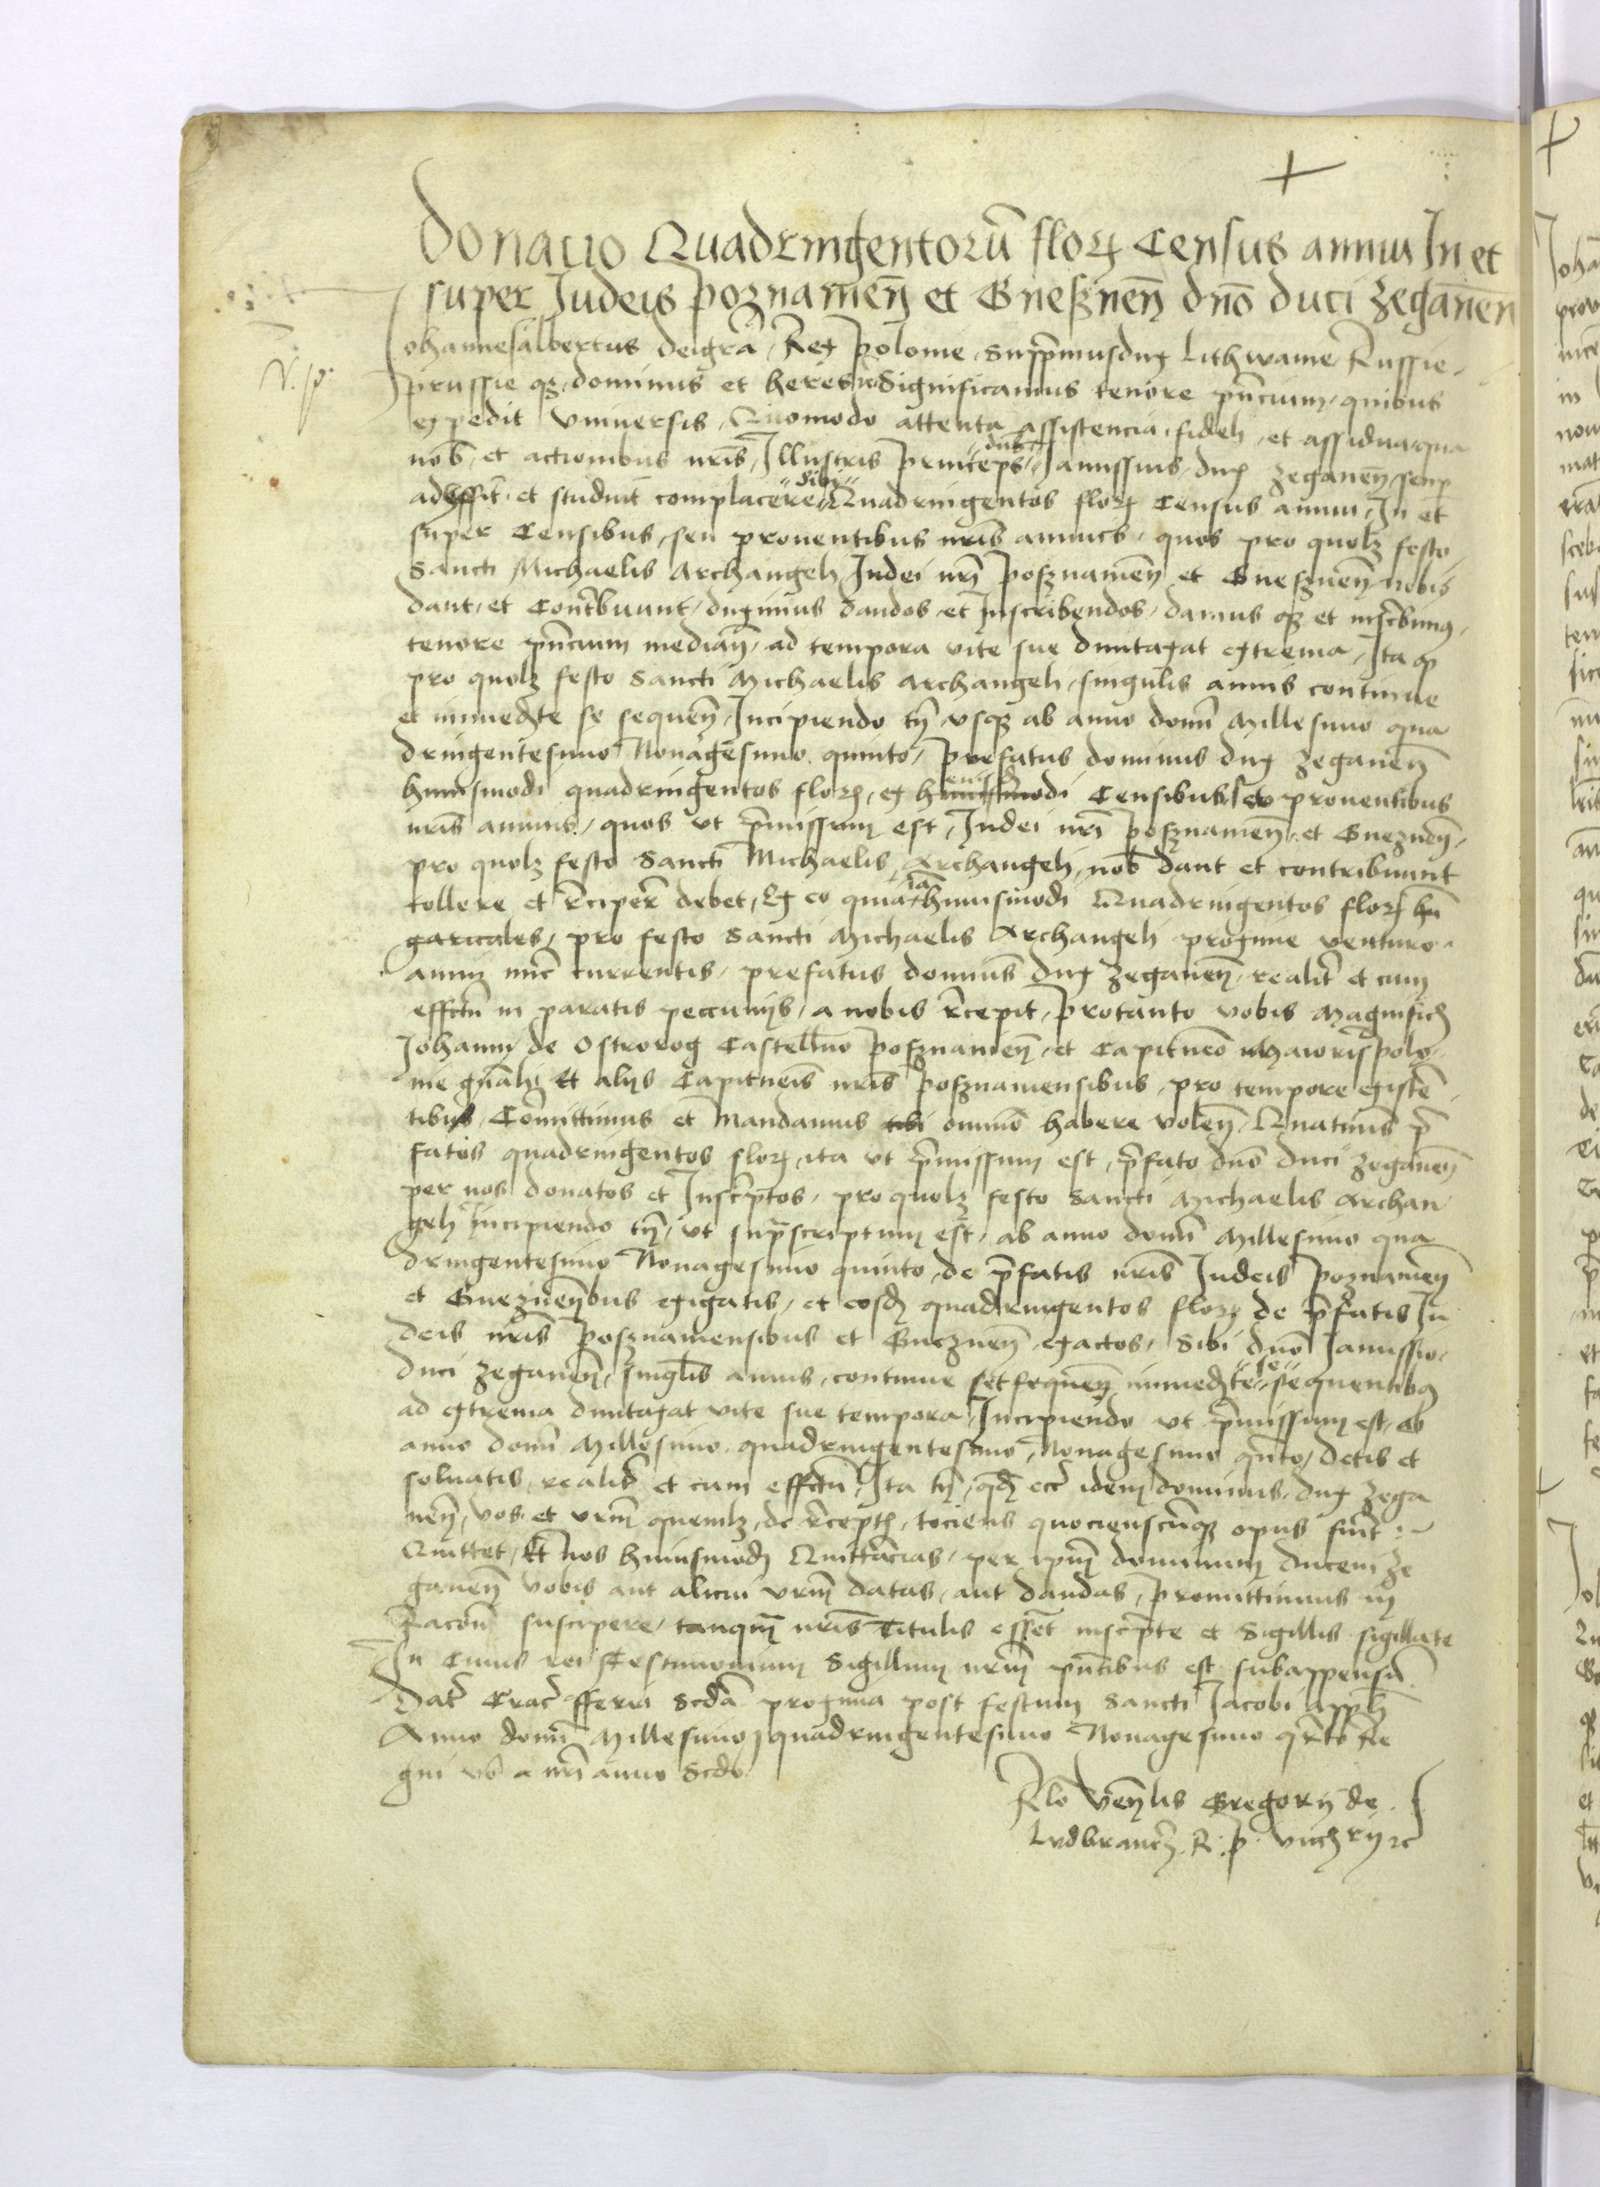 Donacio Quadringentorū florꝝ Census annui In et
super Judeis Poznamen̄ et Gnesznen̄ dn̄o duci Zeganen̄
Johannesalbertus deigrā Rex Polonie, supp̄musdux Lithwanie Russie
V. p.
Prussie qꝫ dominus et heres ꝛc Significamus tenore pn̄cium, quibus
expedit Vniuersis, Quomodo attenta assistencia, fideli, et assidua, qua
nob̄, et actionibus nr̄is, Illustris Princeps, dn̄s Janussius, dux Zeganen̄, semꝑ
adhesit, et studuit complacere, sibi Quadringentos florꝝ Census annui, In et
super Censibus, seu prouentibus nr̄is annuis, quos pro quolꝫ festo
Sancti Michaelis Archangeli, Judei nr̄i Posznamen̄ et Gnesznen̄ nobis
dant, et Contr̄buunt, duximus dandos, et Inscribendos, damus qꝫ et inscr̄bimꝰ,
tenore pn̄cium median̄, ad tempora vite sue dumtaxat extrema, Ita ꝙ
pro quolꝫ festo Sancti Michaelis Archangeli, singulis annis continue
et immediate se sequen̄, Incipiendo tn̄ vsqꝫ ab anno domī Millesimo qua
dringentesimo Nonagesimo quinto, Prefatus dominus dux Zeganen̄
huiusmodi quadringentos florꝝ, ex Censibus seu prouentibus
nr̄is annuis, quos vt p̄missum est, Judei nr̄i Posznamen̄, et Gneznen̄,
pro quolꝫ festo Sancti Michaelis, Archangeli, nob̄ dant et contribuunt
tollere et rēciper̄ debet, Ex eo quia iā huiusmodi Quadringentos florꝝ hū
garicales, pro festo Sancti Michaelis Archangeli proxime venturo
anni nūc currentis, prefatus dominus dux Zeganen̄, realit̄ et cum
effectu in paratis peccunijs, a nobis rēcepit, Protanto vobis Magnifico
Johanni de Ostrorog Castellano Posznamen̄, et Capitaneo Maioris Polo
nie gn̄ali, Et alijs Capitaneis nr̄is Posznamensibus, pro tempore existen̄
tibus, Com̄ittimus et Mandamus omnino habere volen̄, Quatinus p̄
fatos quadringentos florꝝ, ita vt p̄missum est, p̄fato dn̄o duci Zeganen̄
per nos donatos et Inscr̄ptos, pro quolꝫ festo Sancti Michaelis Archan
geli incipiendo tn̄, vt sup̄scriptum est, ab anno domī Millesimo qua
dringentesimo Nonagesimo quinto, de p̄fatis nr̄is Judeis Poznamen̄
et Gneznen̄bus exigatis, et eosdē quadringentos florꝝ de p̄fatis Ju
deis nr̄is Posznamensibus et Gneznen̄, exactos, sibi dn̄o Janussio,
duci Zeganen̄, singl̄is annis, continue immediate se sequentibꝰ
ad extrema dumtaxat vite sue tempora, Incipiendo vt p̄missum est, ab
anno domī Millesimo quadringentesimo, Nonagesimo qn̄to, detis et
soluatis, realit̄ et cum effectu, Ita tn̄, qd̄ idem dominus dux Zega
nen̄, vos, et vr̄m quemlꝫ, de rēceptis, tociens quocienscūqꝫ opus fuīt
Quittet, Et nos huiusmodi Quittācias, per ipm̄ dominum ducem Ze
ganen̄ vobis aut alicui vr̄m datas, aut dandas, Promittimus in
Racōm̄ suscipere, tanqm̄ nr̄is Titulis essēt inscr̄pte et Sigillis sigillate
In Cuius rei Testimonium Sigillum nr̄m pn̄tibus est subappensū
Dat̄ Crac̄ fferia scdā proxima post festum Sancti Jacobi appli̅
Anno domī Millesimo quadringentesimo Nonagesimo qr̄to Re
gni vō nr̄i anno Scdo
Rlō Ven̄lis Gregorij de
Lvdbrancz R. p. vicczry ꝛc